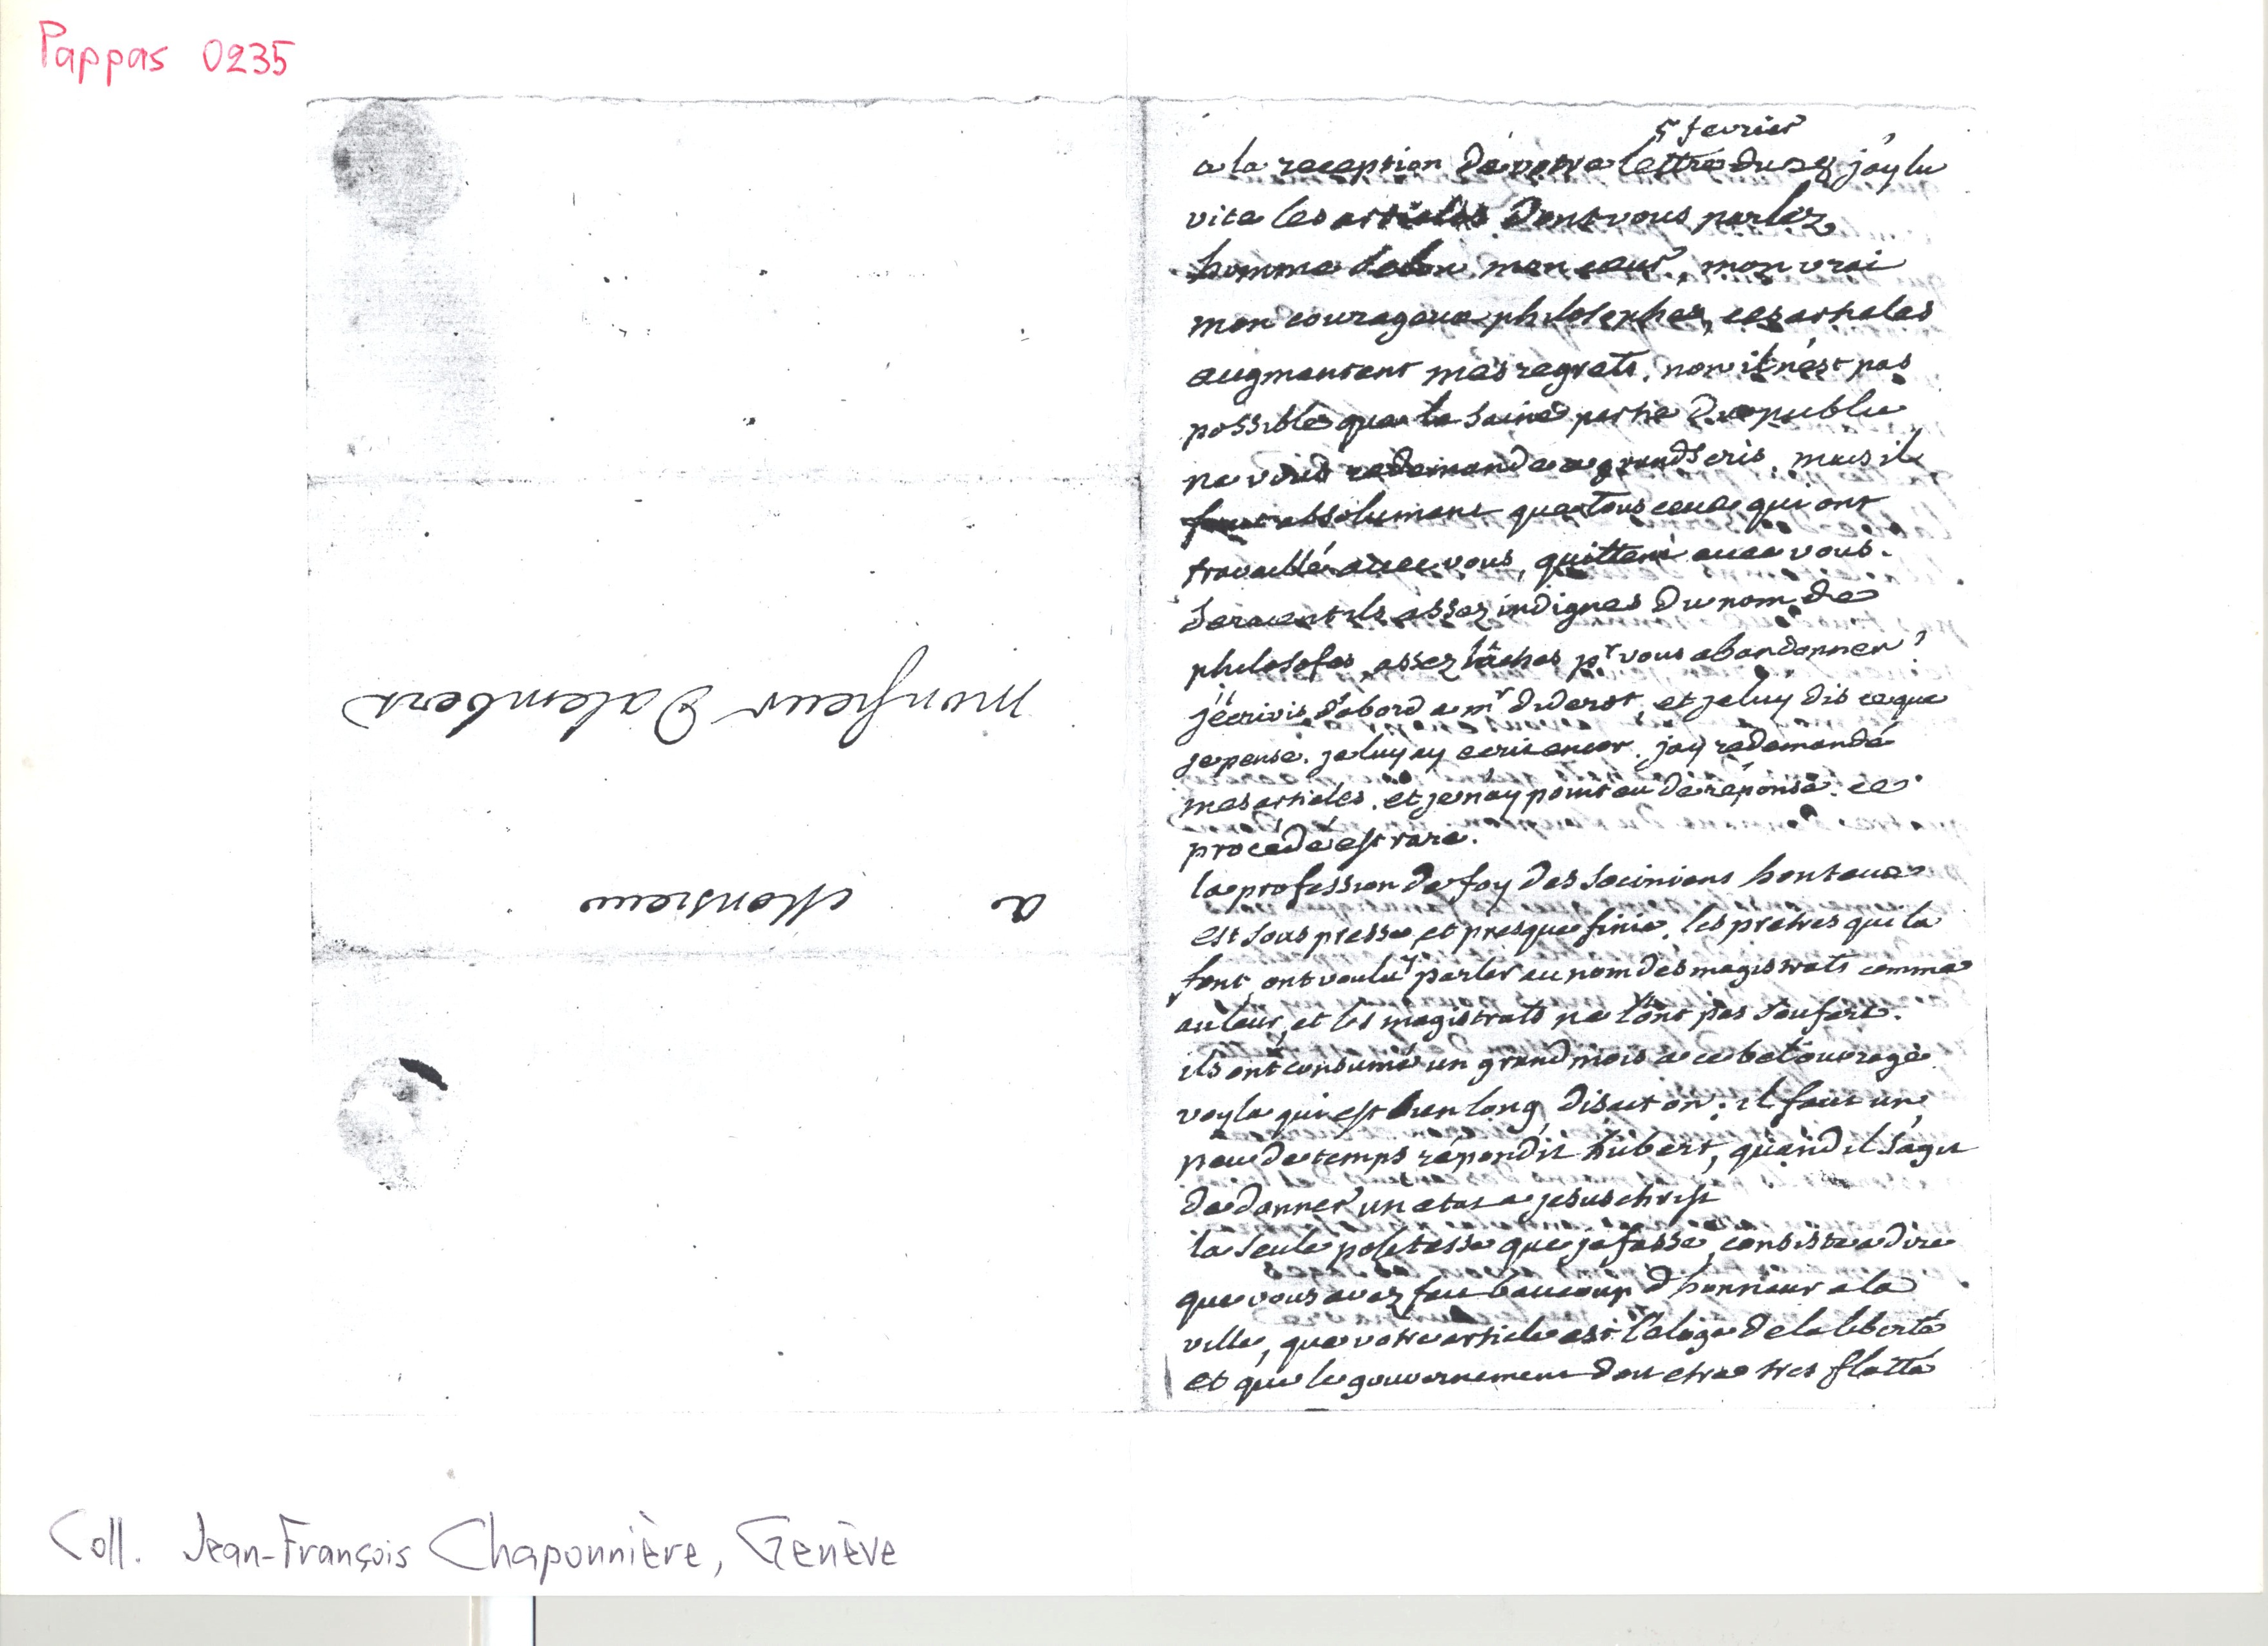 Pappas 0235
a
Monsieur
monsieur Dalembert
5 fevrier
a la reception de votre lettre du 28 j'ay lu
vite les articles dont vous parlez
homme selon mon cœur, mon vrai
mon courageux philosophe, ces articles
augmentent mes regrets. non il n'est pas
possible que la saine partie du public
ne vous redemande a grands cris. mais il
faut absolument que tous ceux qui ont
travaillé avec vous, quittent avec vous.
seraient ils assez indignes du nom de
philosofes, assez lâches pr vous abandonner?
j'écrivis d'abord a mr diderot, et je luy dis ce que
je pense. je luy ay ecrit encor. jay redemandé
mes articles. et je n'ay point eu de réponse. ce
procédé est rare.
la profession de foy des sociniens honteux
est sous presse et presque finie. les pretres qui la
font, ont voulu parler au nom des magistrats comme
au leur, et les magistrats ne l'ont pas soufert.
ils ont consumé un grand mois a ce bel ouvrage
voyla qui est bien long disait on; il faut un
peu de temps répondit hubert, quand il s'agit
de donner un etat a jesus christ
la seule politesse que je fasse, consiste a dire
que vous avez fait baucoup d'honneur a la
ville, que votre article est l'eloge de la liberté
et que le gouvernement doit etre tres flatté
Coll. Jean-François Chaponnière, Genève